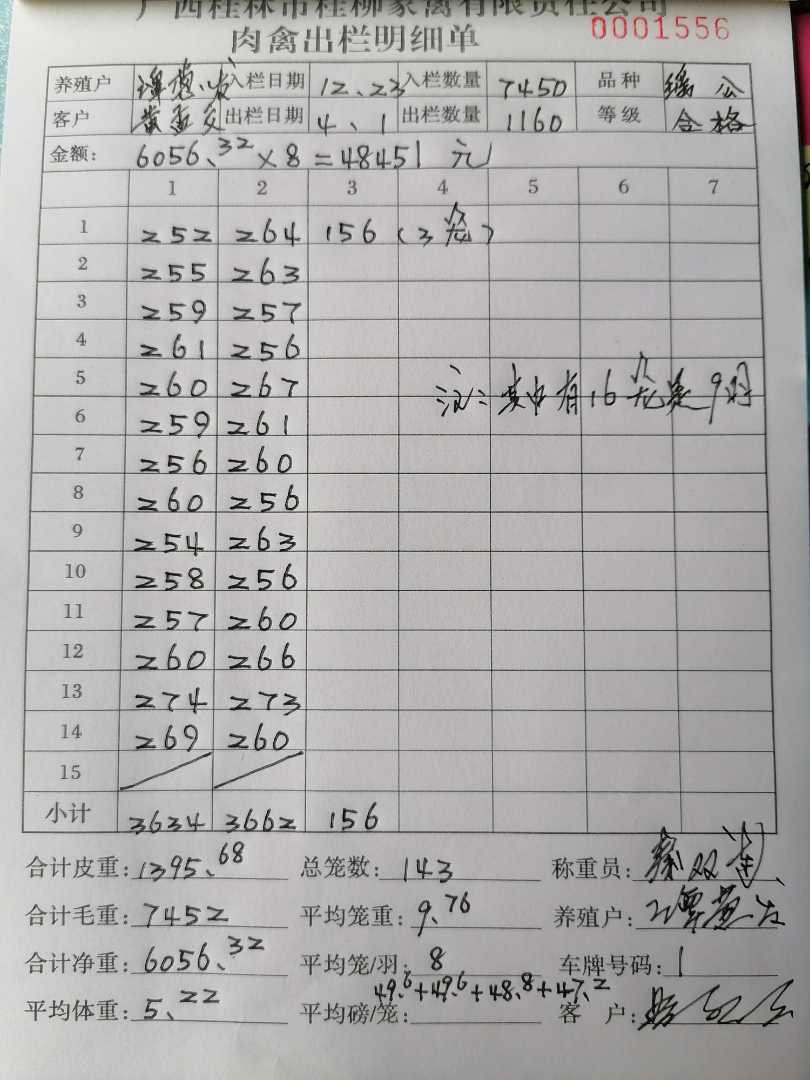 广西桂林市桂柳家禽有限责任公司
肉禽出栏明细单 0001556
养殖户 入栏日期 12、23 入栏数量 7450 品种 公
客户 黄孟交 出栏日期 4、1 出栏数量 1160 等级 合格
金额: 6056、32×8=48451 元
1 2 3 4 5 6 7
1 252 264 156 (3笼)
2 255 263
3 259 257
4 261 256
5 260 267 注:其中有16笼是9羽
6 259 261
7 256 260
8 260 256
9 254 263
10 258 256
11 257 260
12 260 266
13 274 273
14 269 260
15
小计 3634 3662 156
合计皮重: 1395、68 总笼数: 143 称重员:
合计毛重: 7452 平均笼重: 9、76 养殖户:
合计净重: 6056、32 平均笼/羽: 8 车牌号码: 1
平均体重: 5、22 平均磅/笼: 49、6+49、6+48、8+47、2 客 户: